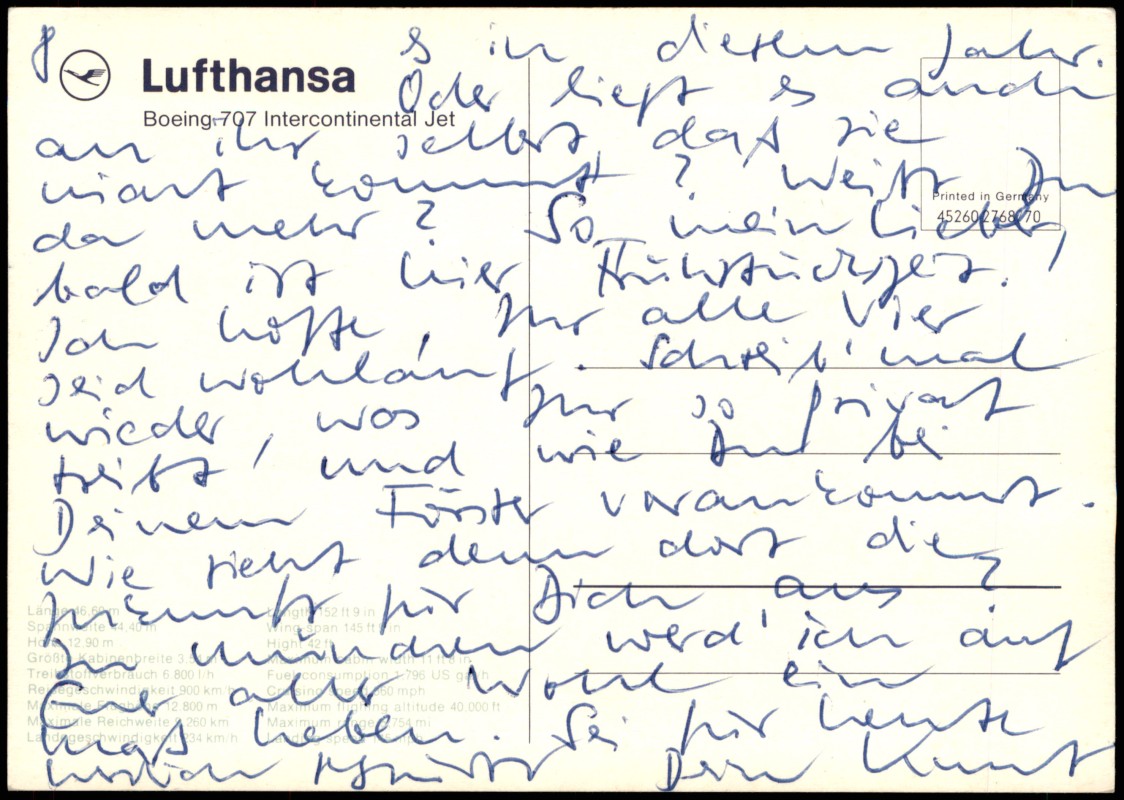 8
es in diesem Jahr.
Lufthansa
Oder liegt es auch
Boeing 707 Intercontinental Jet
an ihr selbst, daß sie
nicht kommt? Weißt Du
Printed in Germany
da mehr? So, mein Lieber,
bald ist hier Frühstückszeit!
Ich hoffe, Ihr alle Vier
seid wohlauf. Schreib' mal
wieder, was Ihr so privat
treibt, und wie Du bei
Deinem Förster vorankommst.
Wie sieht denn dort die
Zukunft für Dich aus?
Zu München werd' ich auf
Euer aller Wohl ein
Maß heben. Sei für heute
herzlich gegrüßt Dein Kurt
Länge 46,69 m
Length 152 ft 9 in
Spannweite 44,40 m
Wing span 145 ft in
Höhe 12,90 m
Hight 42 ft
Größte Kabinenbreite
Maximum cabin width 11 ft 8 in
Treibstoffverbrauch 6 800 l/h
Fuel consumption 1,796 US gal/h
Reisegeschwindigkeit 900 km/h
mph
Maximale Flughöhe 12.800 m
Maximum flighting altitude 40.000 ft
Maximale Reichweite 9 260 km
Maximum range mi
Landegeschwindigkeit 234 km/h
Landing speed